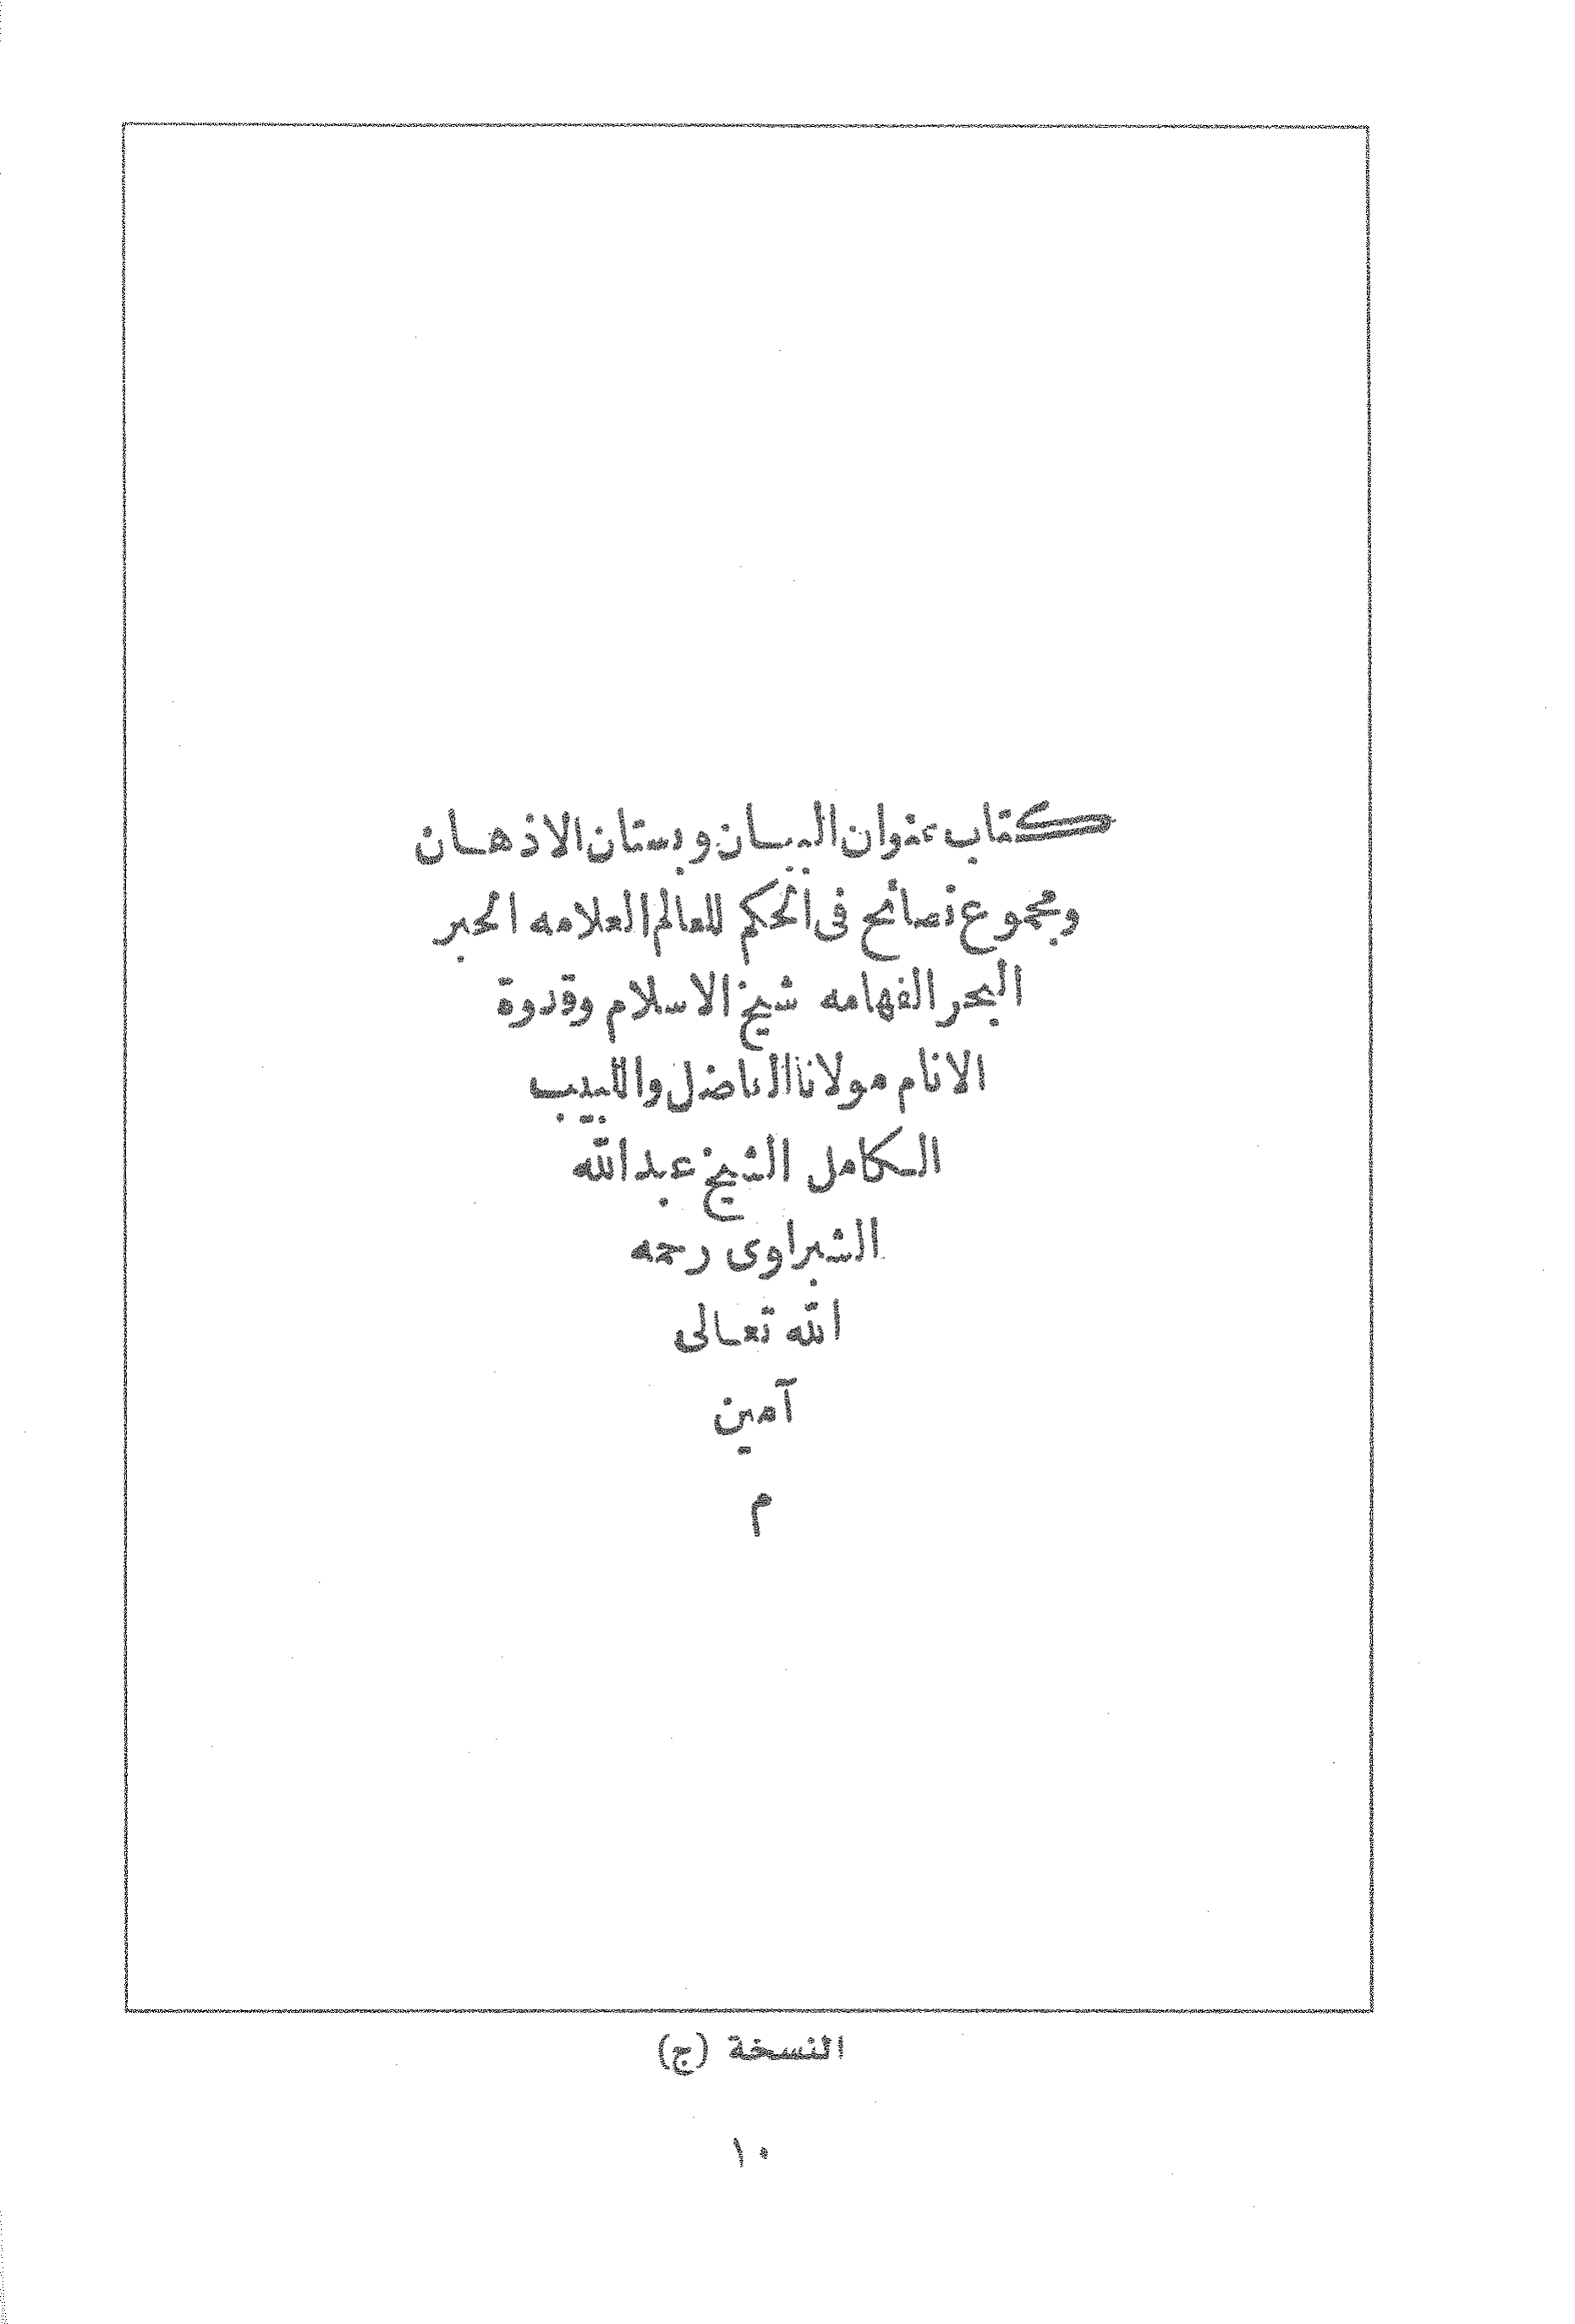 كتاب عنوان البيان وبستان الاذهان
ومجموع نصائح فى الحكم للعالم العلامه الحبر
البحر الفهامه شيخ الاسلام وقدوة
الانام مولانا الفاضل واللبيب
الكامل الشيخ عبد الله
الشبراوى رحمه
الله تعالى
آمين
م
النسخة (ج)
١٠